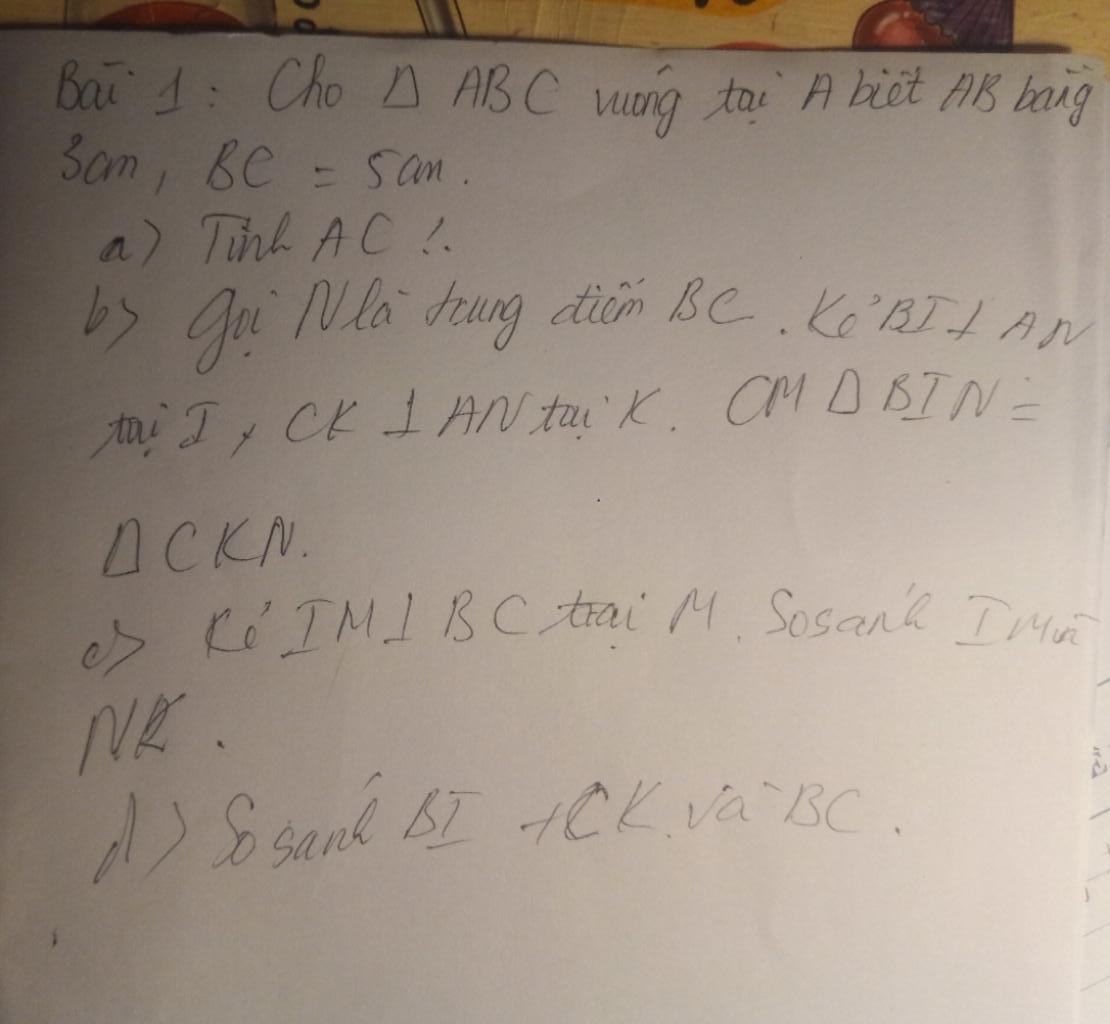 Bài 1: Cho Δ ABC vuông tại A biết AB bằng
3cm, BC = 5cm.
a) Tính AC !.
b) Gọi N là trung điểm BC. Kẻ BI ⊥ AN
tại I, CK ⊥ AN tại K. CM Δ BIN =
Δ CKN.
c) Kẻ IM ⊥ BC tại M. So sánh IM và
NK.
d) So sánh BI + CK và BC.